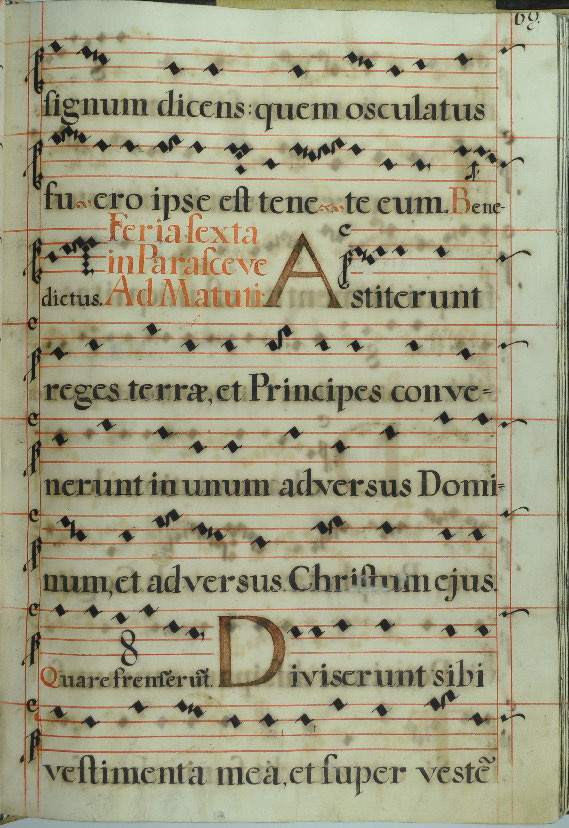 69.
signum dicens: quem osculatus
fuero ipse est tenete eum. Bene-
dictus. Feria sexta
in Parasceve
Ad Matuti.
Astiterunt
reges terræ, et Principes conve-
nerunt in unum adversus Domi-
num, et adversus Christum ejus.
8
Quare fremŭerūt. Diviserunt sibi
vestimenta mea, et super vestẽ